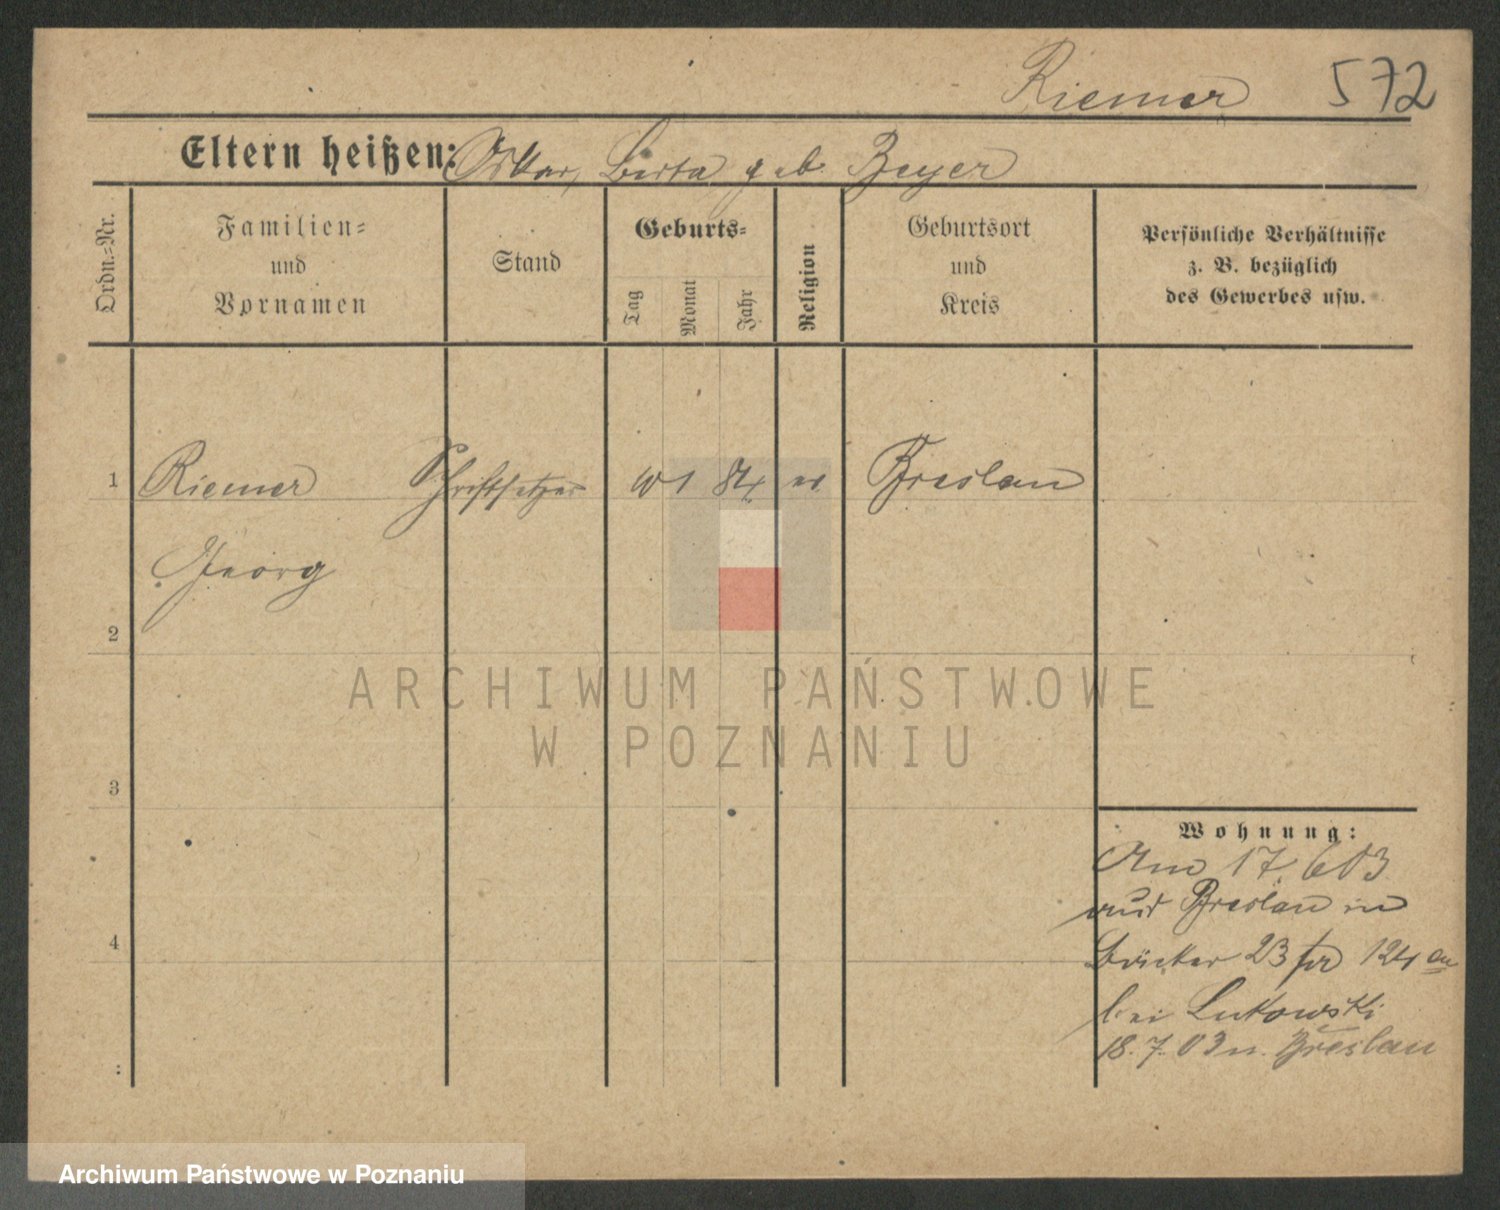 Riemer 572
Eltern heißen: Oskar, Berta geb. Beyer
Ordn.=Nr.
Familien=
und
Vornamen
Stand
Geburts=
Tag
Monat
Jahr
Religion
Geburtsort
und
Kreis
Persönliche Verhältnisse
z. B. bezüglich
des Gewerbes usw.
1 Riemer Schriftsetzer 10 1 84 ev Breslau
Georg
2
3
4
:
Wohnung:
Am 17. 6 03
aus Breslau in
23 124
bei Lukowski
18. 7. 03 n. Breslau
ARCHIWUM PAŃSTWOWE
W POZNANIU
Archiwum Państwowe w Poznaniu